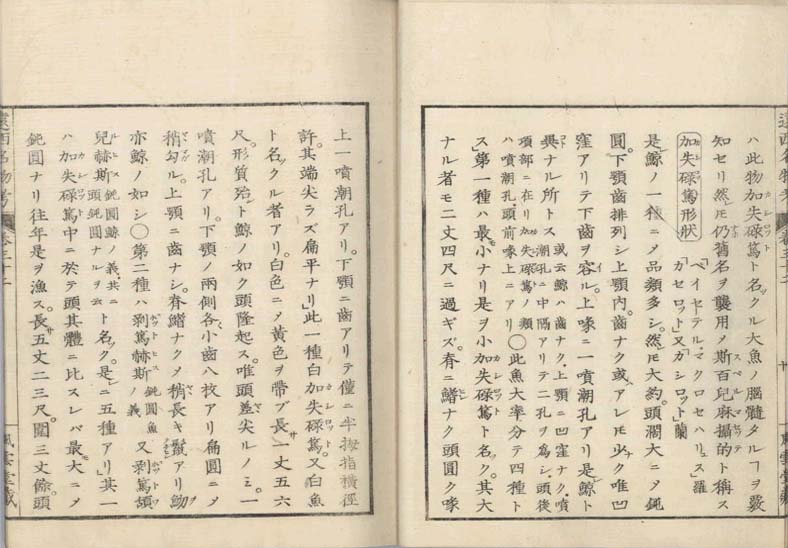 ハ此物加失碌篤ト名ックル大魚ノ腦髓タルヿヲ覈
カシロット
知セリ然𪜈仍舊名ヲ襲用メ斯百兒麻攝的ト稱ス
スペルマセッテ
加失碌篤形狀
カシロット
「ペイセーテル・マクロセハリュス」羅
「カセロット」又「ガシロット」蘭
是レ鯨ノ一種ニメ品類多シ然𪜈大約頭濶大ニメ鈍
圓下顎齒排列シ上顎内齒ナク或ハアレ𪜈少ク唯凹
窪アリテ下齒ヲ容ル上喙ニ一噴潮孔アリ是鯨ト
イル
異ナル所トス
或云鯨ハ齒ナク上顎ニ凹窪ナク噴
潮孔ニ中隔アリテ二孔ヲ爲シ頭後
項部ニ在リ加失碌篤ノ類
ハ噴潮孔頭前喙上ニアリ
〇此魚大率分テ四種ト
ス第一種ハ最モ小ナリ是ヲ小加失碌篤ト名ク其大
カシロット
ナル者モ二丈四尺ニ過ギズ脊ニ鰭ナク頭圓ク喙
上一噴潮孔アリ下顎ニ齒アリテ僅ニ半拇指橫徑
許其端尖ラズ扁平ナリ此一種白加失碌篤又白魚
カシロット
ト名ックル者アリ白色ニメ黄色ヲ帶ブ長サ一丈五六
尺形質殆ト鯨ノ如ク頭隆起ス唯頭差尖ルノミ一
噴潮孔アリ下顎ノ兩側各小齒八枚アリ扁圓ニメ
稍勾ル上顎ニ齒ナシ脊鰭ナクメ稍長キ鬣アリ鰤
亦鯨ノ如シ〇第二種ハ剥篤赫斯
ポットヒス
鈍圓魚
ノ義
又剥篤頡
ポットワ
兒赫斯
ルヒス
鈍圓鯨ノ義共ニ
頭鈍圓ナルヲ云
ト名ク是ニ五種アリ其一
ハ加失碌篤中ニ於テ頭其體ニ比スレバ最大ニメ
カシロット
鈍圓ナリ往年是ヲ漁ス長サ五丈二三尺圍三丈餘頭
遠西名物考
卷三十二
風雲堂藏